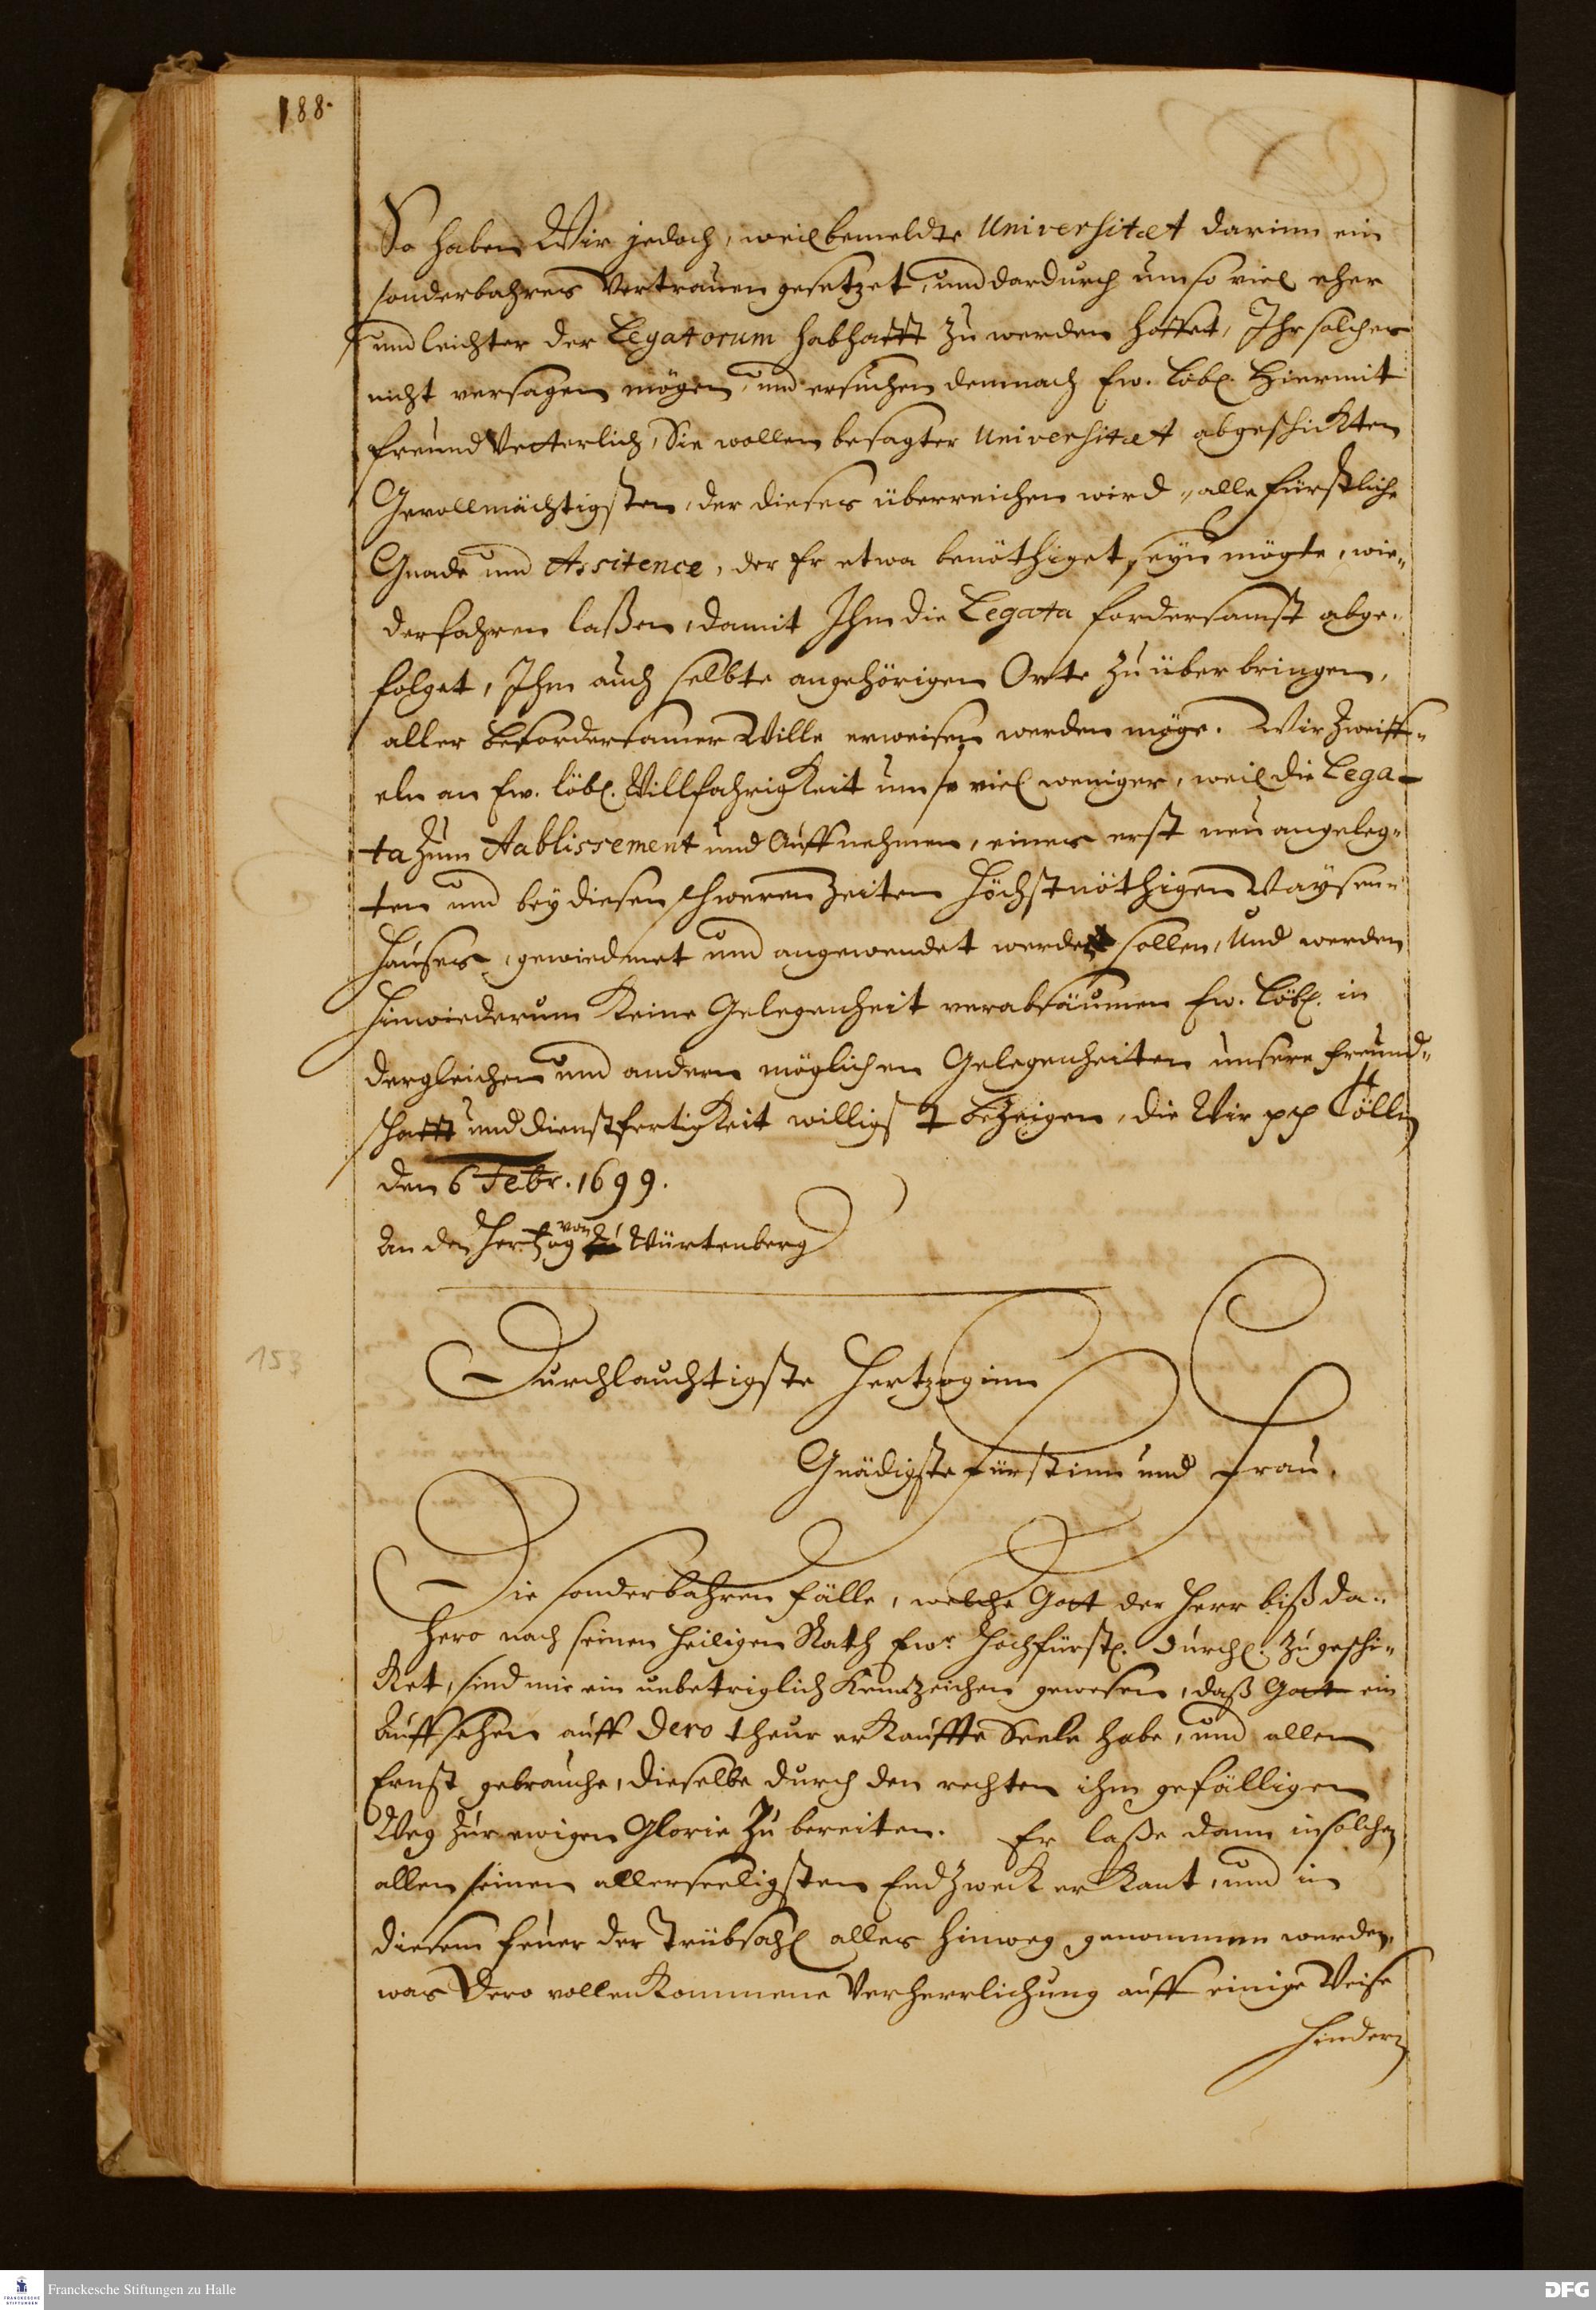 188.
So haben Wir jedoch, weil bemeldte Universitæt darinn ein
sonderbahres Vertrauen gesetzet, und dardurch um so viel eher
und leichter der Legatorum habhafft zu werden hoffet, Ihr solches
nicht versagen mögen, und ersuchen demnach Ew. Löbl. hiermit
freund Vetterlich, Sie wollen besagter Universitæt abgeschickten
Gevollmächtigsten, der dieses überreichen wird, alle Fürstliche
Gnade und Assitence, der Er etwa benöthiget seyn mögte, wie„
derfahren laßen, damit Ihm die Legata fordersamst abge„
folget, Ihm auch selbte angehörigen Orte zu überbringen,
aller befordersamer Wille erweisen werden möge. Wir zweiff„
eln an Ew. löbl. Willfahrigkeit um so viel weniger, weil die Lega-
ta zum Aablissement und Auffnehmen, eines erst neu angeleg„
ten und bey diesen schweren Zeiten höchstnöthigen Waysen„
hauses, gewiedmet und angewendet werden sollen, Und werden
hinwiederum Keine Gelegenheit verabsäumen Ew. Löbl. in
dergleichen und andern möglichen Gelegenheiten unsere Freund„
schafft und Dienstfertigkeit willigst bezeigen, die Wir pp Cölln
den 6 Febr. 1699.
An den Hertzog von Würtenberg
153
Durchlauchtigste Hertzoginn
Gnädigste Fürstinn und Frau,
Die sonderbahren Fälle, welche Gott der Herr biß da„
hero nach seinen heiligen Rath Ewr. Hochfürstl. Durchl. zugeschi„
ket, sind mir ein unbetriglich Kennzeichen gewesen, daß Gott ein
Auffsehen auff Dero theur erkauffte Seele habe, und allen
Ernst gebrauche, dieselbe durch den rechten ihm gefälligen
Weg zur ewigen Glorie zu bereiten. Er laße dann in solchen
allen seinen allerseeligsten Endzweck erkant, und in
diesem Feuer der Trübsahl alles hinweg genommen werden,
was Dero vollenkommene Verherrlichung auff einige Weise
hindern
Franckesche Stiftungen zu Halle
FRANCKESCHE
STIFTUNGEN
DFG